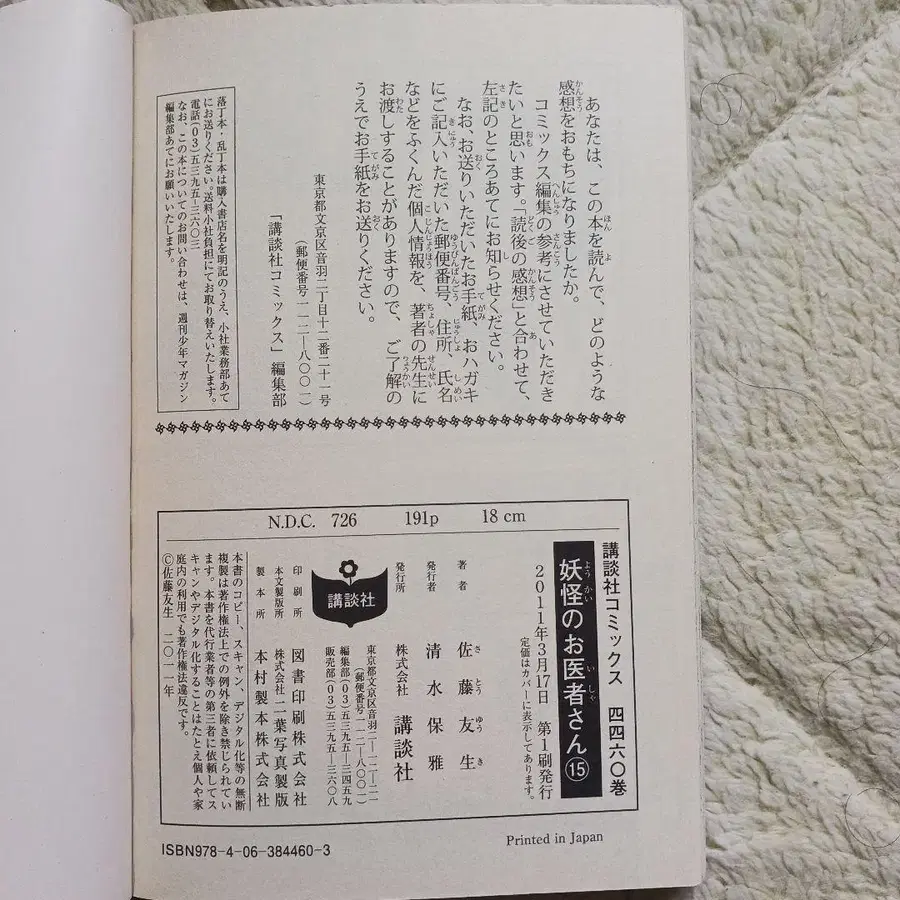 あなたは、この本を読んで、どのような
感想をおもちになりましたか。
コミックス編集の参考にさせていただき
たいと思います。「読後の感想」と合わせて、
左記のところあてにお知らせください。
なお、お送りいただいたお手紙、おハガキ
にご記入いただいた郵便番号、住所、氏名
などをふくんだ個人情報を、著者の先生に
お渡しすることがありますので、ご了解の
うえでお手紙をお送りください。
東京都文京区音羽二丁目十二番二十一号
(郵便番号一一二-八〇〇一)
「講談社コミックス」編集部
落丁本・乱丁本は購入書店名を明記のうえ、小社業務部あて
にお送りください。送料小社負担にてお取り替えいたします。
電話(03)五三九五-三六〇三
なお、この本についてのお問い合わせは、週刊少年マガジン
編集部あてにお願いいたします。
N.D.C. 726 191p 18 cm
講談社コミックス 四四六〇巻
妖怪のお医者さん⑮
2011年3月17日 第1刷発行
定価はカバーに表示してあります。
著者 佐藤友生
発行者 清水保雅
発行所 株式会社 講談社
東京都文京区音羽二-一二-二一
(郵便番号一一二-八〇〇一)
編集部(03)五三九五-三四五九
販売部(03)五三九五-三六〇八
講談社
印刷所 図書印刷株式会社
本文製版所 株式会社二葉写真製版
製本所 本村製本株式会社
本書のコピー、スキャン、デジタル化等の無断
複製は著作権法上での例外を除き禁じられてい
ます。本書を代行業者等の第三者に依頼してス
キャンやデジタル化することはたとえ個人や家
庭内の利用でも著作権法違反です。
©佐藤友生 二〇一一年
ISBN978-4-06-384460-3
Printed in Japan